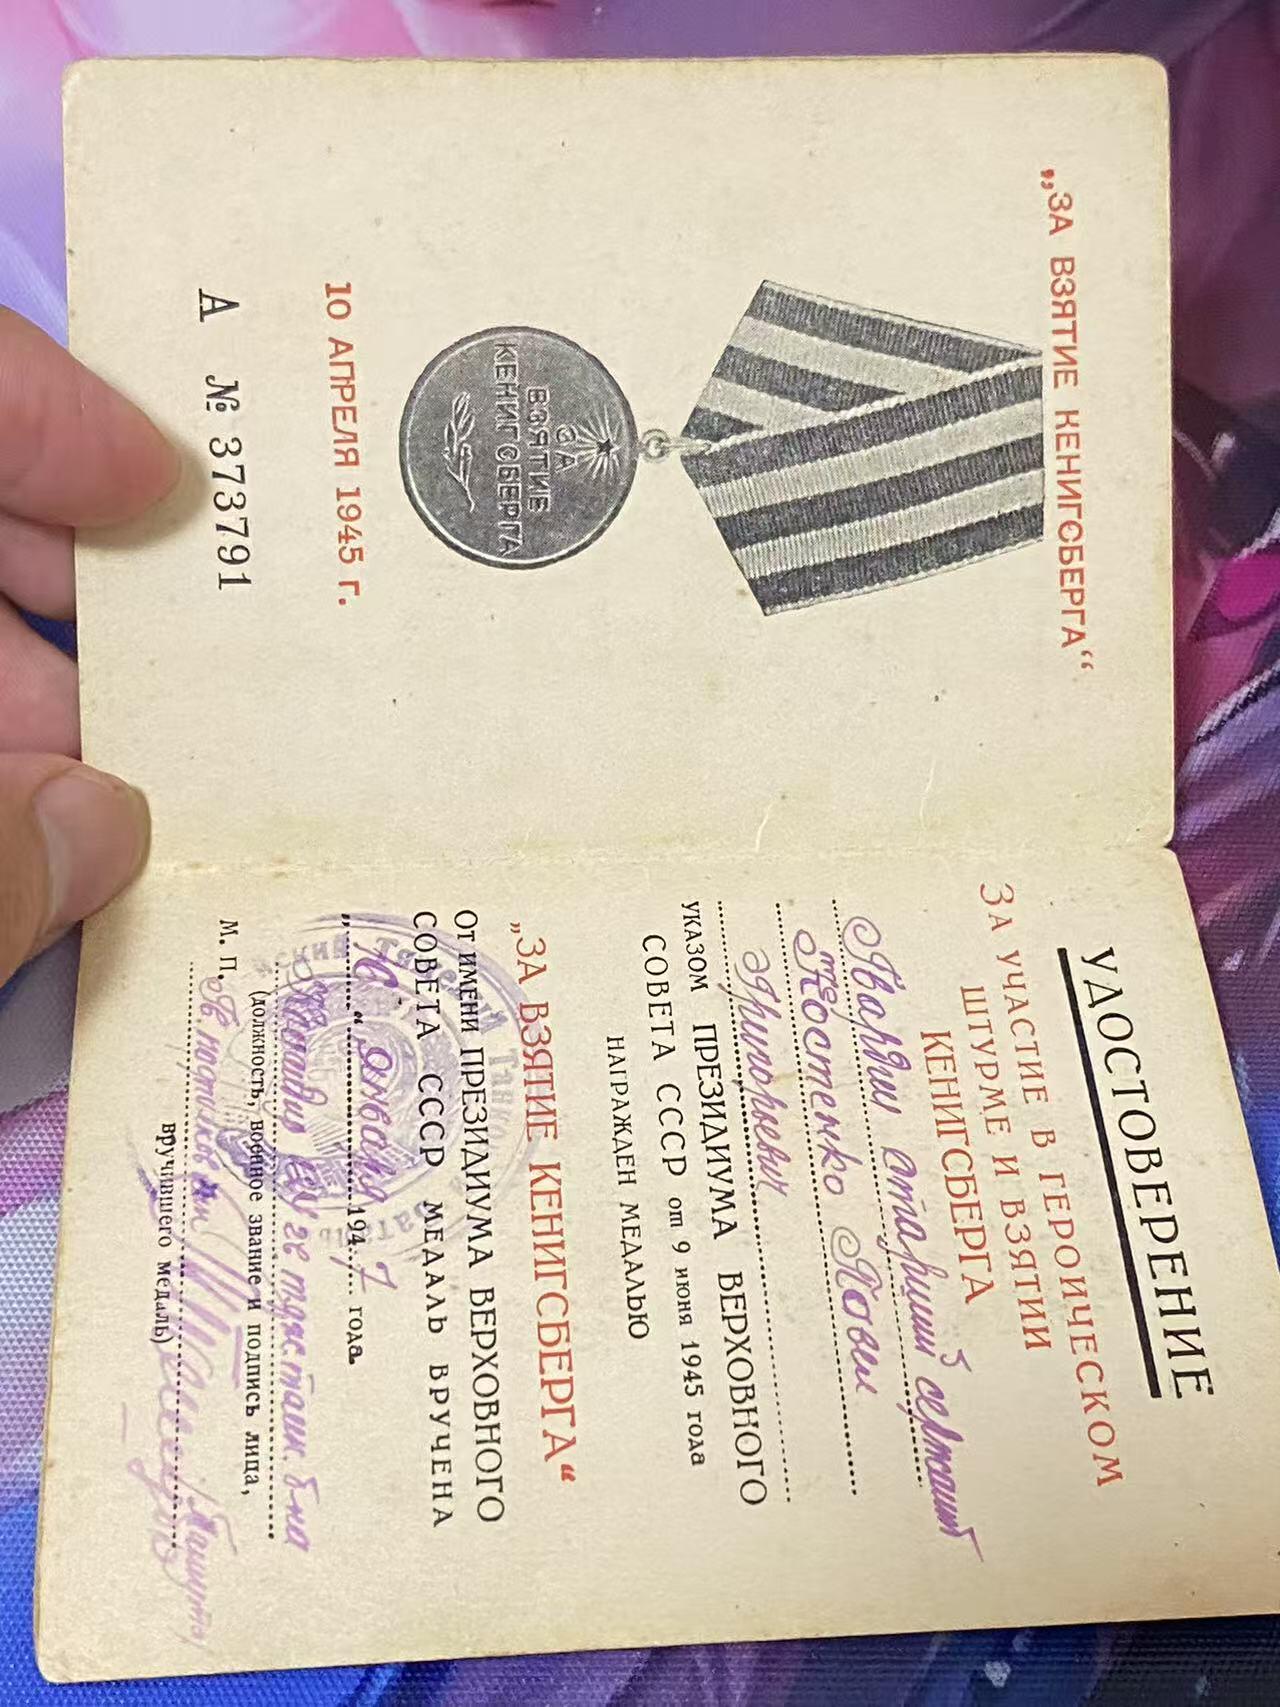 „ЗА ВЗЯТИЕ КЕНИГСБЕРГА“
ЗА
ВЗЯТИЕ
КЕНИГСБЕРГА
10 АПРЕЛЯ 1945 г.
А № 373791
УДОСТОВЕРЕНИЕ
ЗА УЧАСТИЕ В ГЕРОИЧЕСКОМ
ШТУРМЕ И ВЗЯТИИ
КЕНИГСБЕРГА
Гвардии старший сержант
Костенко Павел
Григорьевич
УКАЗОМ ПРЕЗИДИУМА ВЕРХОВНОГО
СОВЕТА СССР от 9 июня 1945 года
НАГРАЖДЕН МЕДАЛЬЮ
„ЗА ВЗЯТИЕ КЕНИГСБЕРГА“
От имени ПРЕЗИДИУМА ВЕРХОВНОГО
СОВЕТА СССР МЕДАЛЬ ВРУЧЕНА
„ “ января 1947 года
Командир б-на
(должность, военное звание и подпись лица,
М. П.
вручившего медаль)